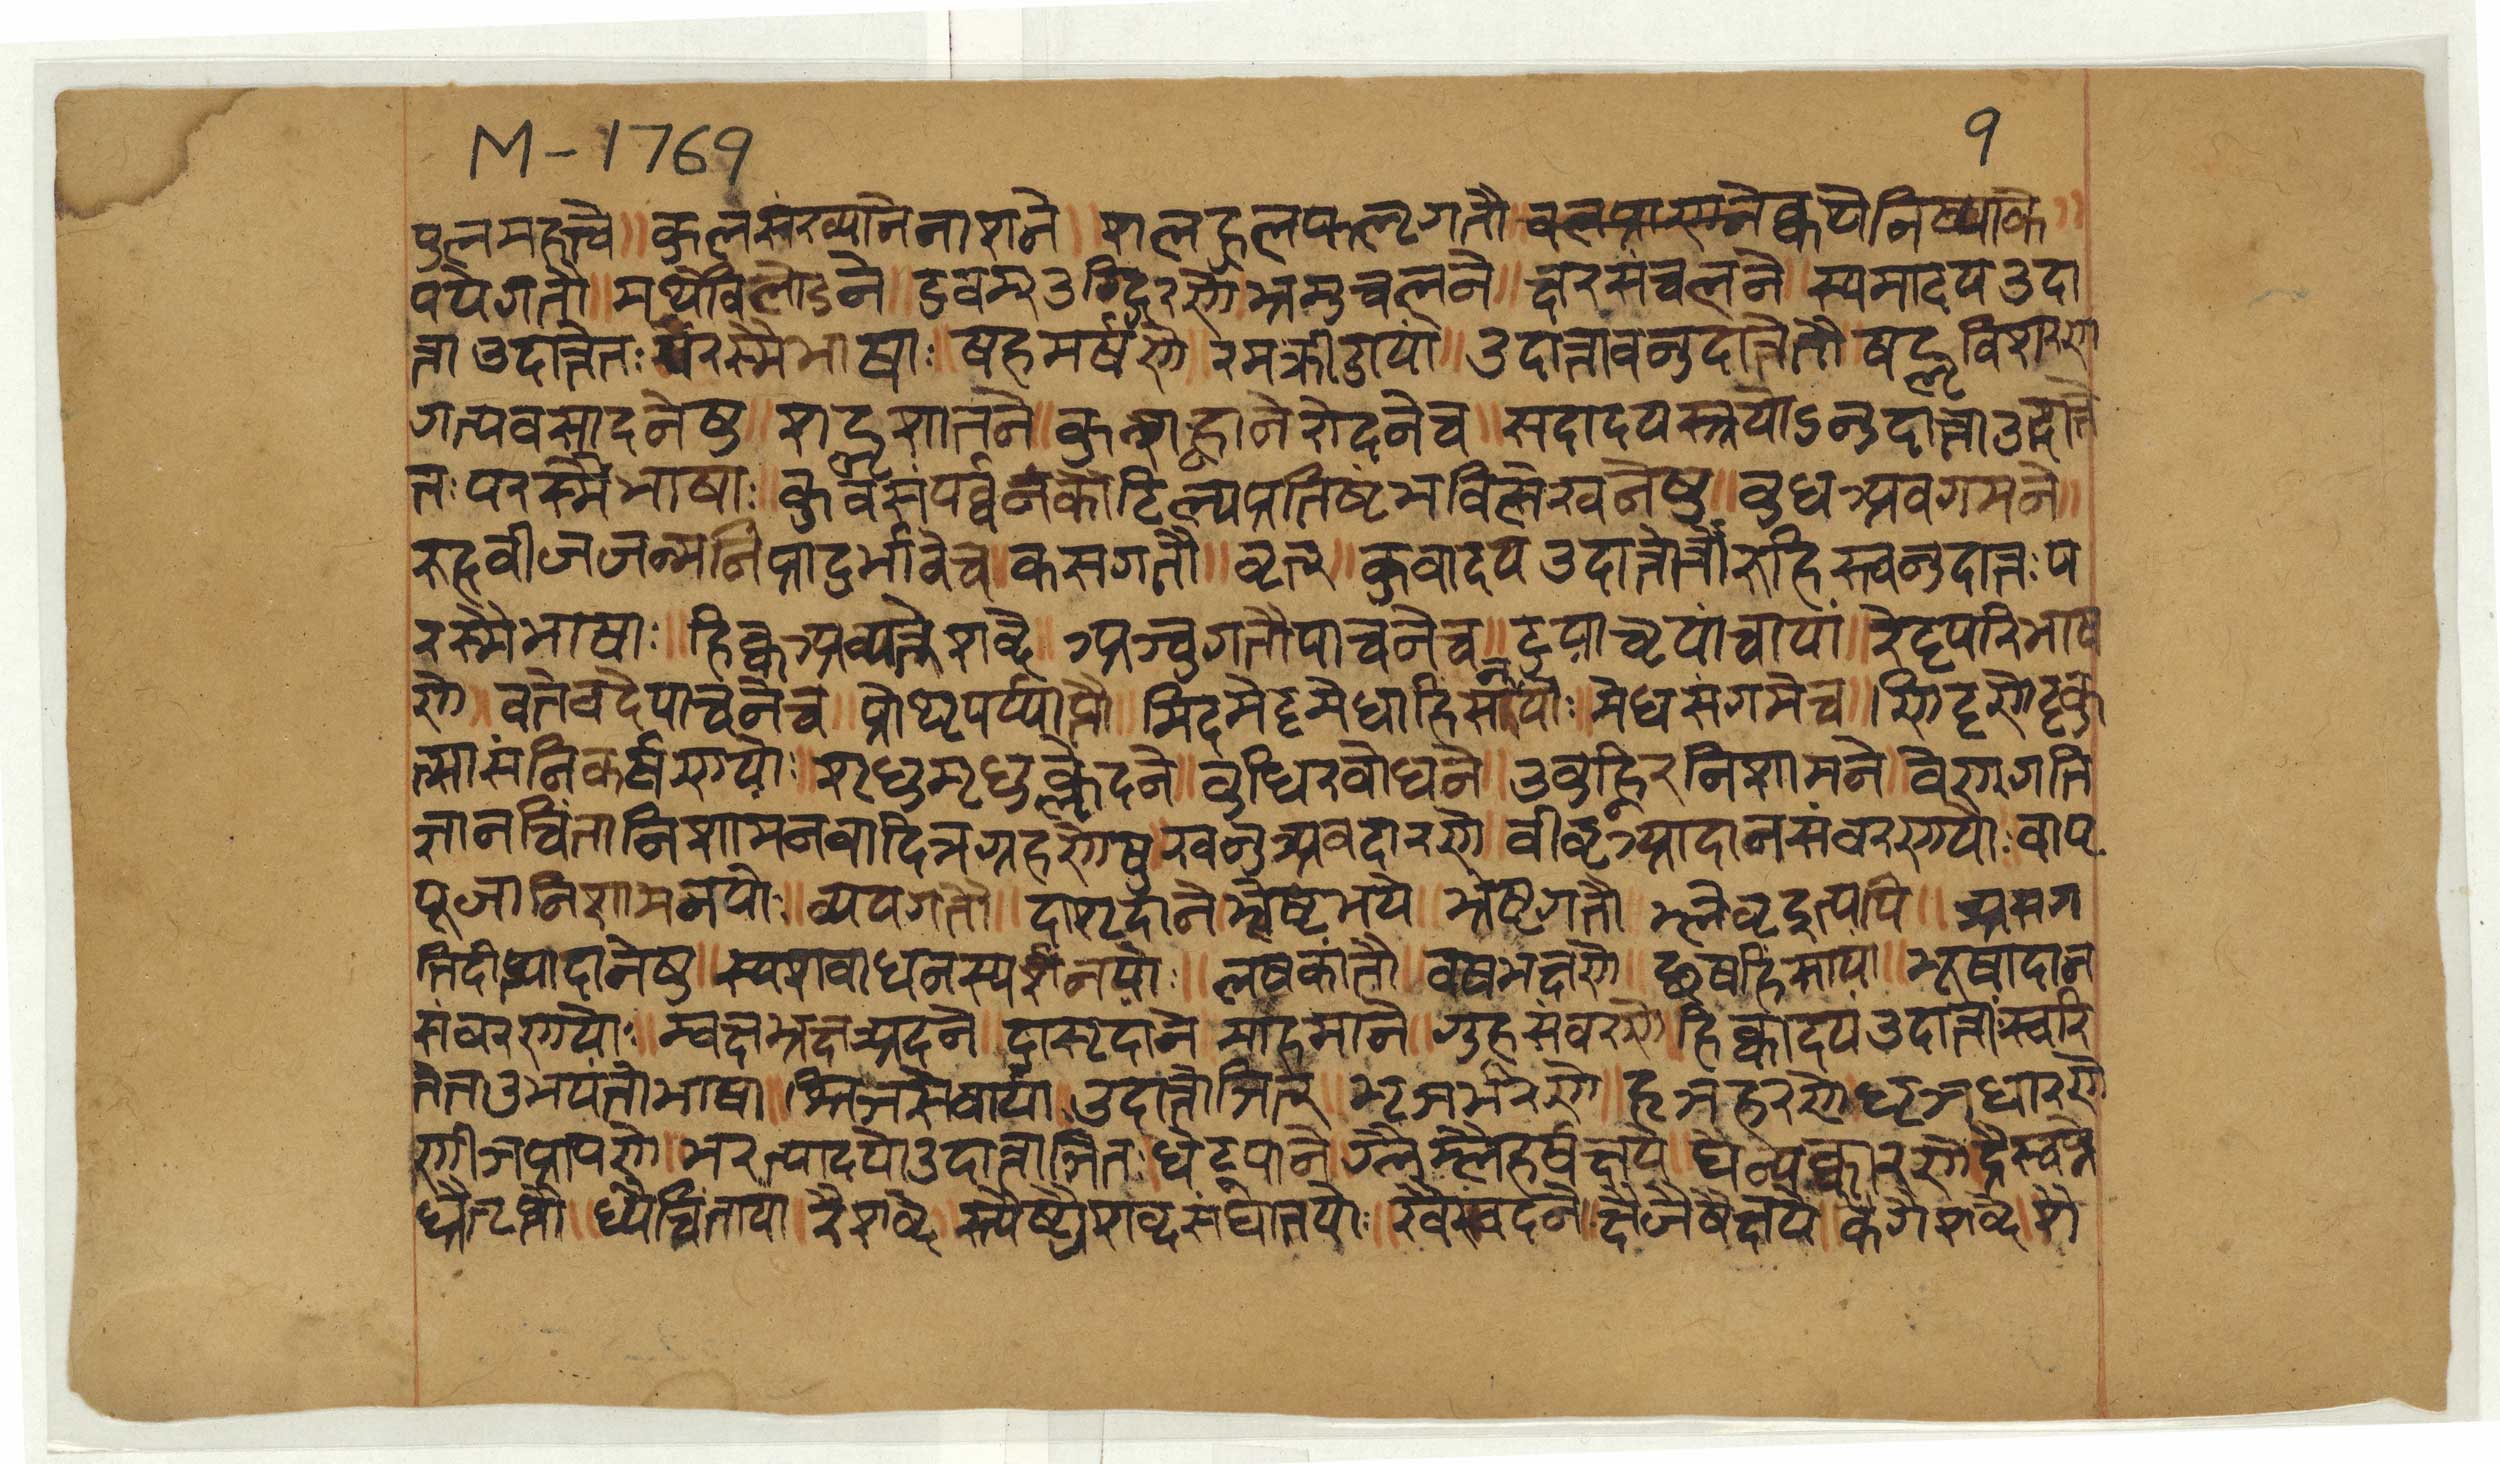 M-1769 १
पुलमहत्वे ॥ कुलसंख्यानेनाशने ॥ शलहुलपत्लृगतौ ॥ बलप्राणने क्वथे निष्पाके ॥
पथेगतौ ॥ मथेविलोडने टुवमउद्गिरणे भ्रमुचलने ॥ क्षरसंचलने ॥ स्यमादय उदा
त्ता उदात्तेतः परस्मैभाषाः ॥ षहमर्षणे रमक्रीडायां ॥ उदात्तावनुदात्तेतौ षद्लृविशरण
गत्यवसादनेषु ॥ शद्लृशातने ॥ क्रुशआह्वाने रोदनेच ॥ सदादयस्त्रयोऽनुदात्ता उदात्ते
तः परस्मैभाषाः ॥ कुचसंपर्च्चनकौटिल्यप्रतिष्टंभविलेखनेषु ॥ बुधअवगमने ॥
रुहबीजजन्मनिप्रादुर्भावेच ॥ कसगतौ ॥ वृत् ॥ कुचादय उदात्तेतौ रुहिस्त्वनुदात्तः प
रस्मैभाषाः ॥ हिक्कअव्यक्तेशब्दे ॥ अञ्चुगतौयाचनेच ॥ टुयाचृयांचायां ॥ रेटृपरिभाष
णे ॥ चतेचदेयाचनेच प्रोथृपर्य्याप्तौ ॥ मिदृमेदृमेधाहिंसनयोः ॥ मेधृसंगमेच ॥ णिदृणेदृकु
त्सासंनिकर्षणयोः ॥ शृधुमृधुक्लेदने ॥ बुधिरबोधने ॥ उबुंदिरनिशामने वेणृगति
ज्ञानचिंतानिशामनवादित्रग्रहणेषु खनुअवदारणे ॥ चीवृआदानसंवरणयोः ॥ चायृ
पूजानिशामनयोः ॥ व्ययगतौ ॥ दाशृदाने भेषृभये भ्रेषृगतौ भ्लेषृइत्यपि ॥ असग
तिदीप्त्यादानेषु ॥ स्पशबाधनस्पर्शनयोः ॥ लषकांतौ चषभक्षणे छषहिंसायां ॥ झषआदान
संवरणयोः ॥ भ्वक्षभ्रक्षअदने दासृदाने माहृमाने ॥ गुहूसंवरणे हिक्कादय उदात्ताः स्वरि
तेत उभयतोभाषाः श्रिञसेवायां ॥ उदात्तोञित् भृञभरणे ॥ हृञहरणे धृञधारणे
णीञप्रापणे ॥ भरत्यादयोउदात्ताञितः ॥ धेट्पाने ग्लैम्लैहर्षक्षये द्यैन्यक्करणे द्रैस्वप्ने
ध्रैतृप्तौ ॥ ध्यैचिंतायां रैशब्दे स्त्यैष्ट्यैशब्दसंघातयोः ॥ खैखदने क्षैजैषैक्षये कैगैशब्दे शै